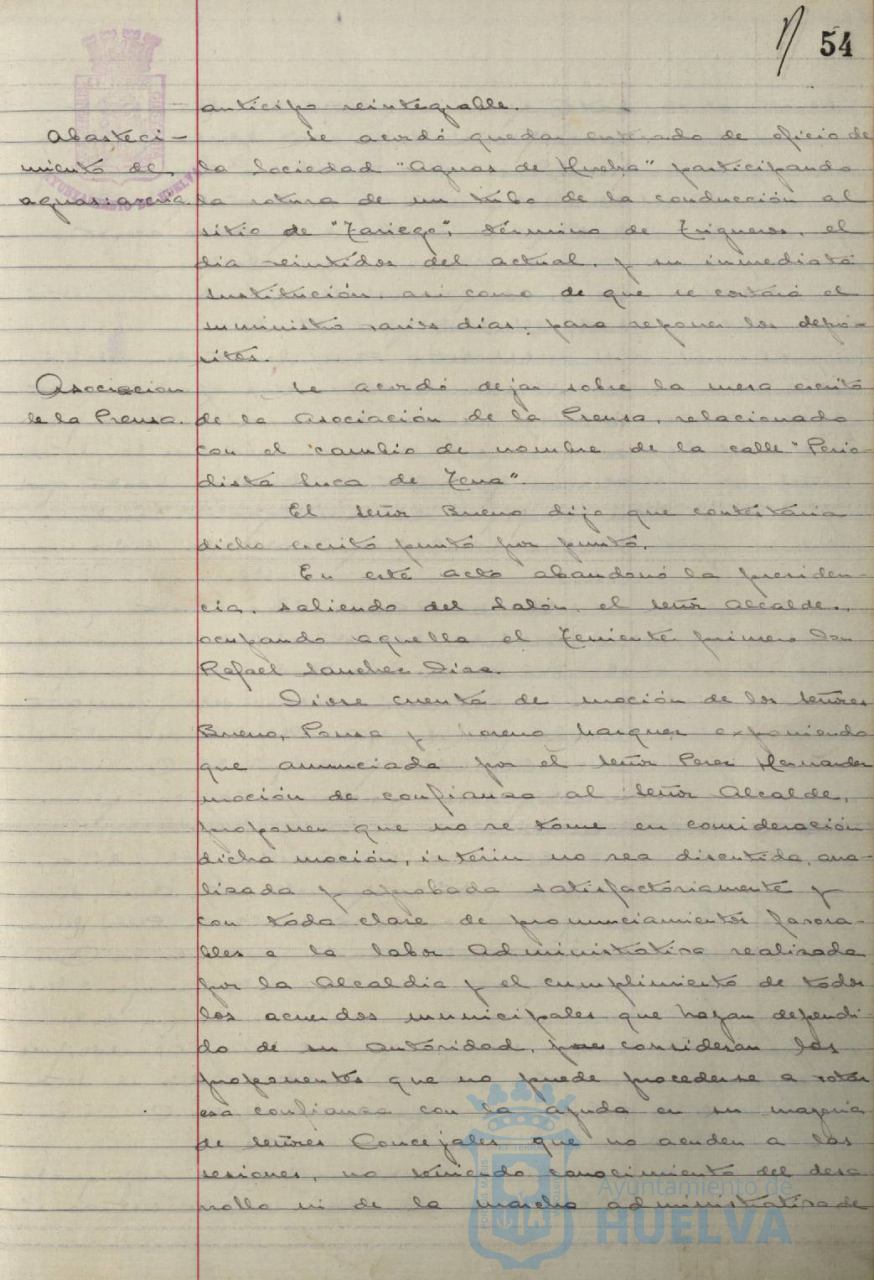 54
anticipo reintegrable.
Abasteci-
miento de
aguas:avería.
Se acordó quedar enterado de oficio de
la Sociedad "Aguas de Huelva" participando
la rotura de un tubo de la conducción al
sitio de "Zariego", término de Trigueros, el
dia veintidos del actual, y su inmediata
sustitución, asi como de que se cortará el
suministro varios dias, para reponer los depó-
sitos.
Asociacion
de la Prensa.
Se acordó dejar sobre la mesa escrito
de la Asociación de la Prensa, relacionado
con el cambio de nombre de la calle "Perio-
dista Luca de Tena".
El señor Bueno dijo que contestaria
dicho escrito punto por punto.
En este acto abandonó la presiden-
cia, saliendo del Salón, el señor Alcalde,
ocupando aquella el Teniente primero Don
Rafael Sanchez Diaz.
Diose cuenta de moción de los señores
Bueno, Ponsa y Moreno Marquez exponiendo
que anunciada por el señor Perez Hernandez
moción de confianza al señor Alcalde,
proponen que no se tome en consideración
dicha moción, interin no sea discutida, ana-
lizada y aprobada satisfactoriamente y
con toda clase de pronunciamientos favora-
bles a la labor Administrativa realizada
por la Alcaldia y el cumplimiento de todos
los acuerdos municipales que hayan dependi-
do de su autoridad, pues consideran los
proponentes que no puede procederse a votar
esa confianza con la ayuda en su mayoria
de señores Concejales que no acuden a las
sesiones, no teniendo conocimiento del desa-
rrollo ni de la marcha administrativa de
Ayuntamiento de
HUELVA